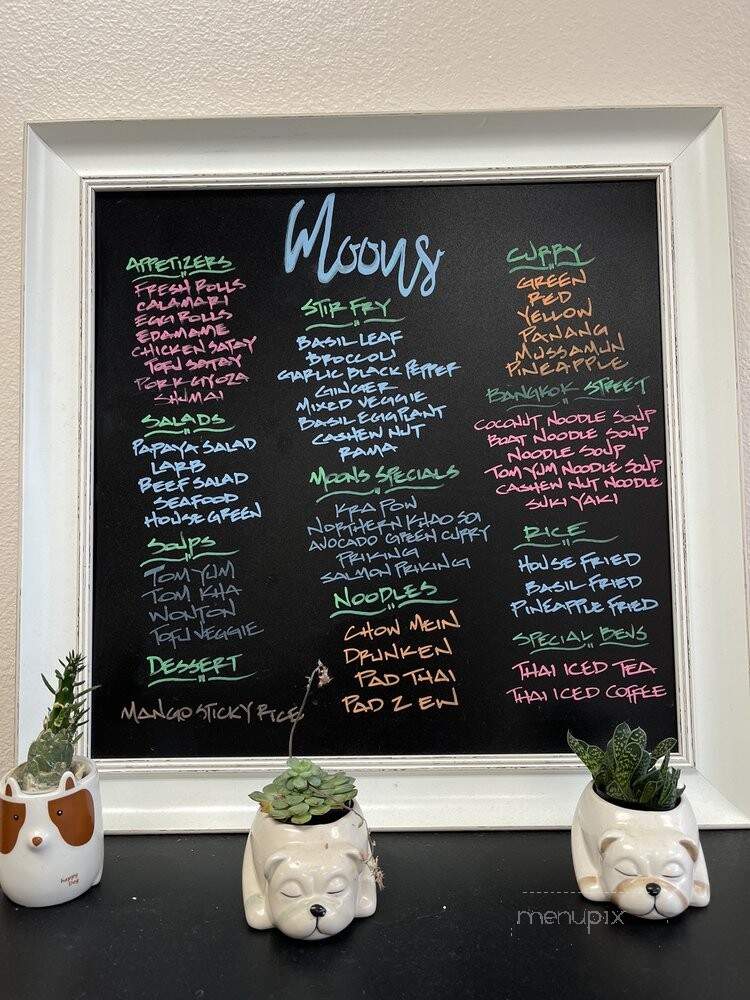 Moons
APPETIZERS
FRESH ROLLS
CALAMARI
EGG ROLLS
EDAMAME
CHICKEN SATAY
TOFU SATAY
PORK GYOZA
SHUMAI
SALADS
PAPAYA SALAD
LARB
BEEF SALAD
SEAFOOD
HOUSE GREEN
SOUPS
TOM YUM
TOM KHA
WONTON
TOFU VEGGIE
DESSERT
MANGO STICKY RICE
STIR FRY
BASIL LEAF
BROCCOLI
GARLIC BLACK PEPPER
GINGER
MIXED VEGGIE
BASIL EGGPLANT
CASHEW NUT
RAMA
MOONS SPECIALS
KRA POW
NORTHERN KHAO SOI
AVOCADO GREEN CURRY
PRIKING
SALMON PRIKING
NOODLES
CHOW MEIN
DRUNKEN
PAD THAI
PAD Z EW
CURRY
GREEN
RED
YELLOW
PANANG
MUSSAMUN
PINEAPPLE
BANGKOK STREET
COCONUT NOODLE SOUP
BOAT NOODLE SOUP
NOODLE SOUP
TOM YUM NOODLE SOUP
CASHEW NUT NOODLE
SUKI YAKI
RICE
HOUSE FRIED
BASIL FRIED
PINEAPPLE FRIED
SPECIAL BEVS
THAI ICED TEA
THAI ICED COFFEE
happy
Dog
menupix